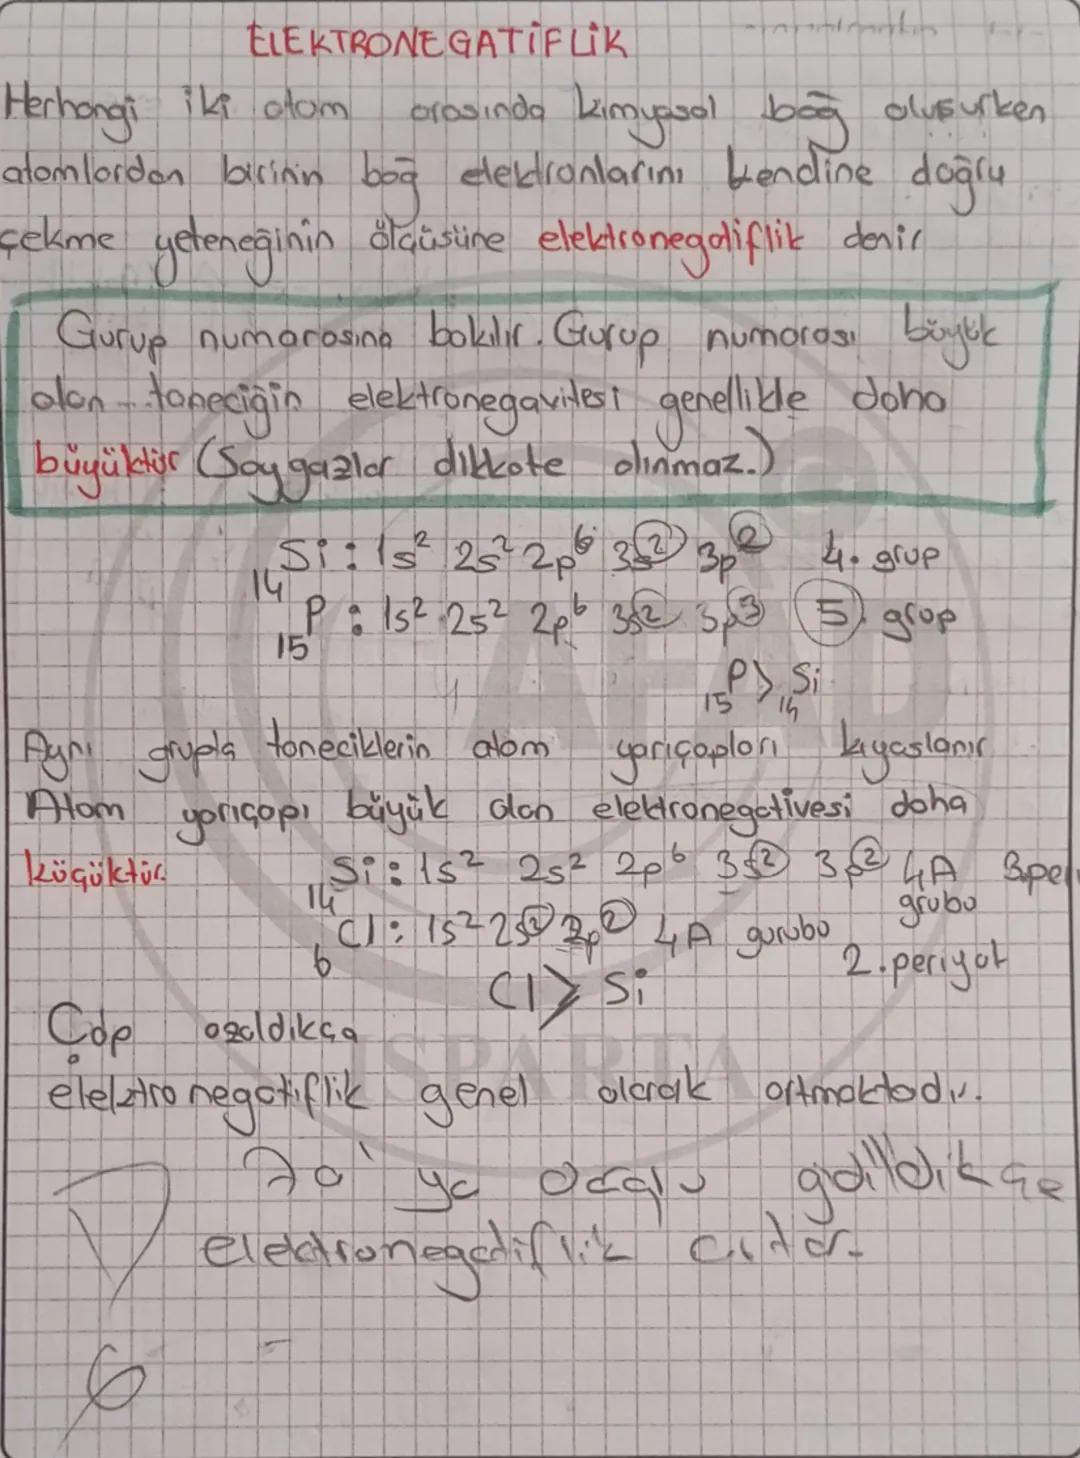 ELEKTRONEGATİFLİK
Herhangi iki atom arasında kimyasal bağ oluşurken
atomlardan birinin bağ elektronlarını kendine doğru
çekme yeteneğinin ölçüsüne elektronegatiflik denir
Gurup numarasına bakılır. Gurup numarası büyük
olan taneciğin elektronegavitesi genellikle daha
büyüktür (Soygazlar dikkate alınmaz.)
14Si : 1s² 2s² 2p⁶ 3s² 3p² 4. grup
15P : 1s² 2s² 2p⁶ 3s² 3p³ 5. grup
15P > 14Si
Aynı grupta taneciklerin atom yarıçapları kıyaslanır
Atom yarıçapı büyük olan elektronegativesi daha
küçüktür.
14Si : 1s² 2s² 2p⁶ 3s² 3p² 4A grubu 3.per
6Cl : 1s² 2s² 2p² 4A gurubu 2.periyot
Cl > Si
Çap azaldıkça
elektronegatiflik genel olarak artmaktadır.
7a' ya doğru gidildikçe
elektronegatiflik artar.
6
AFAD
ISPARTA